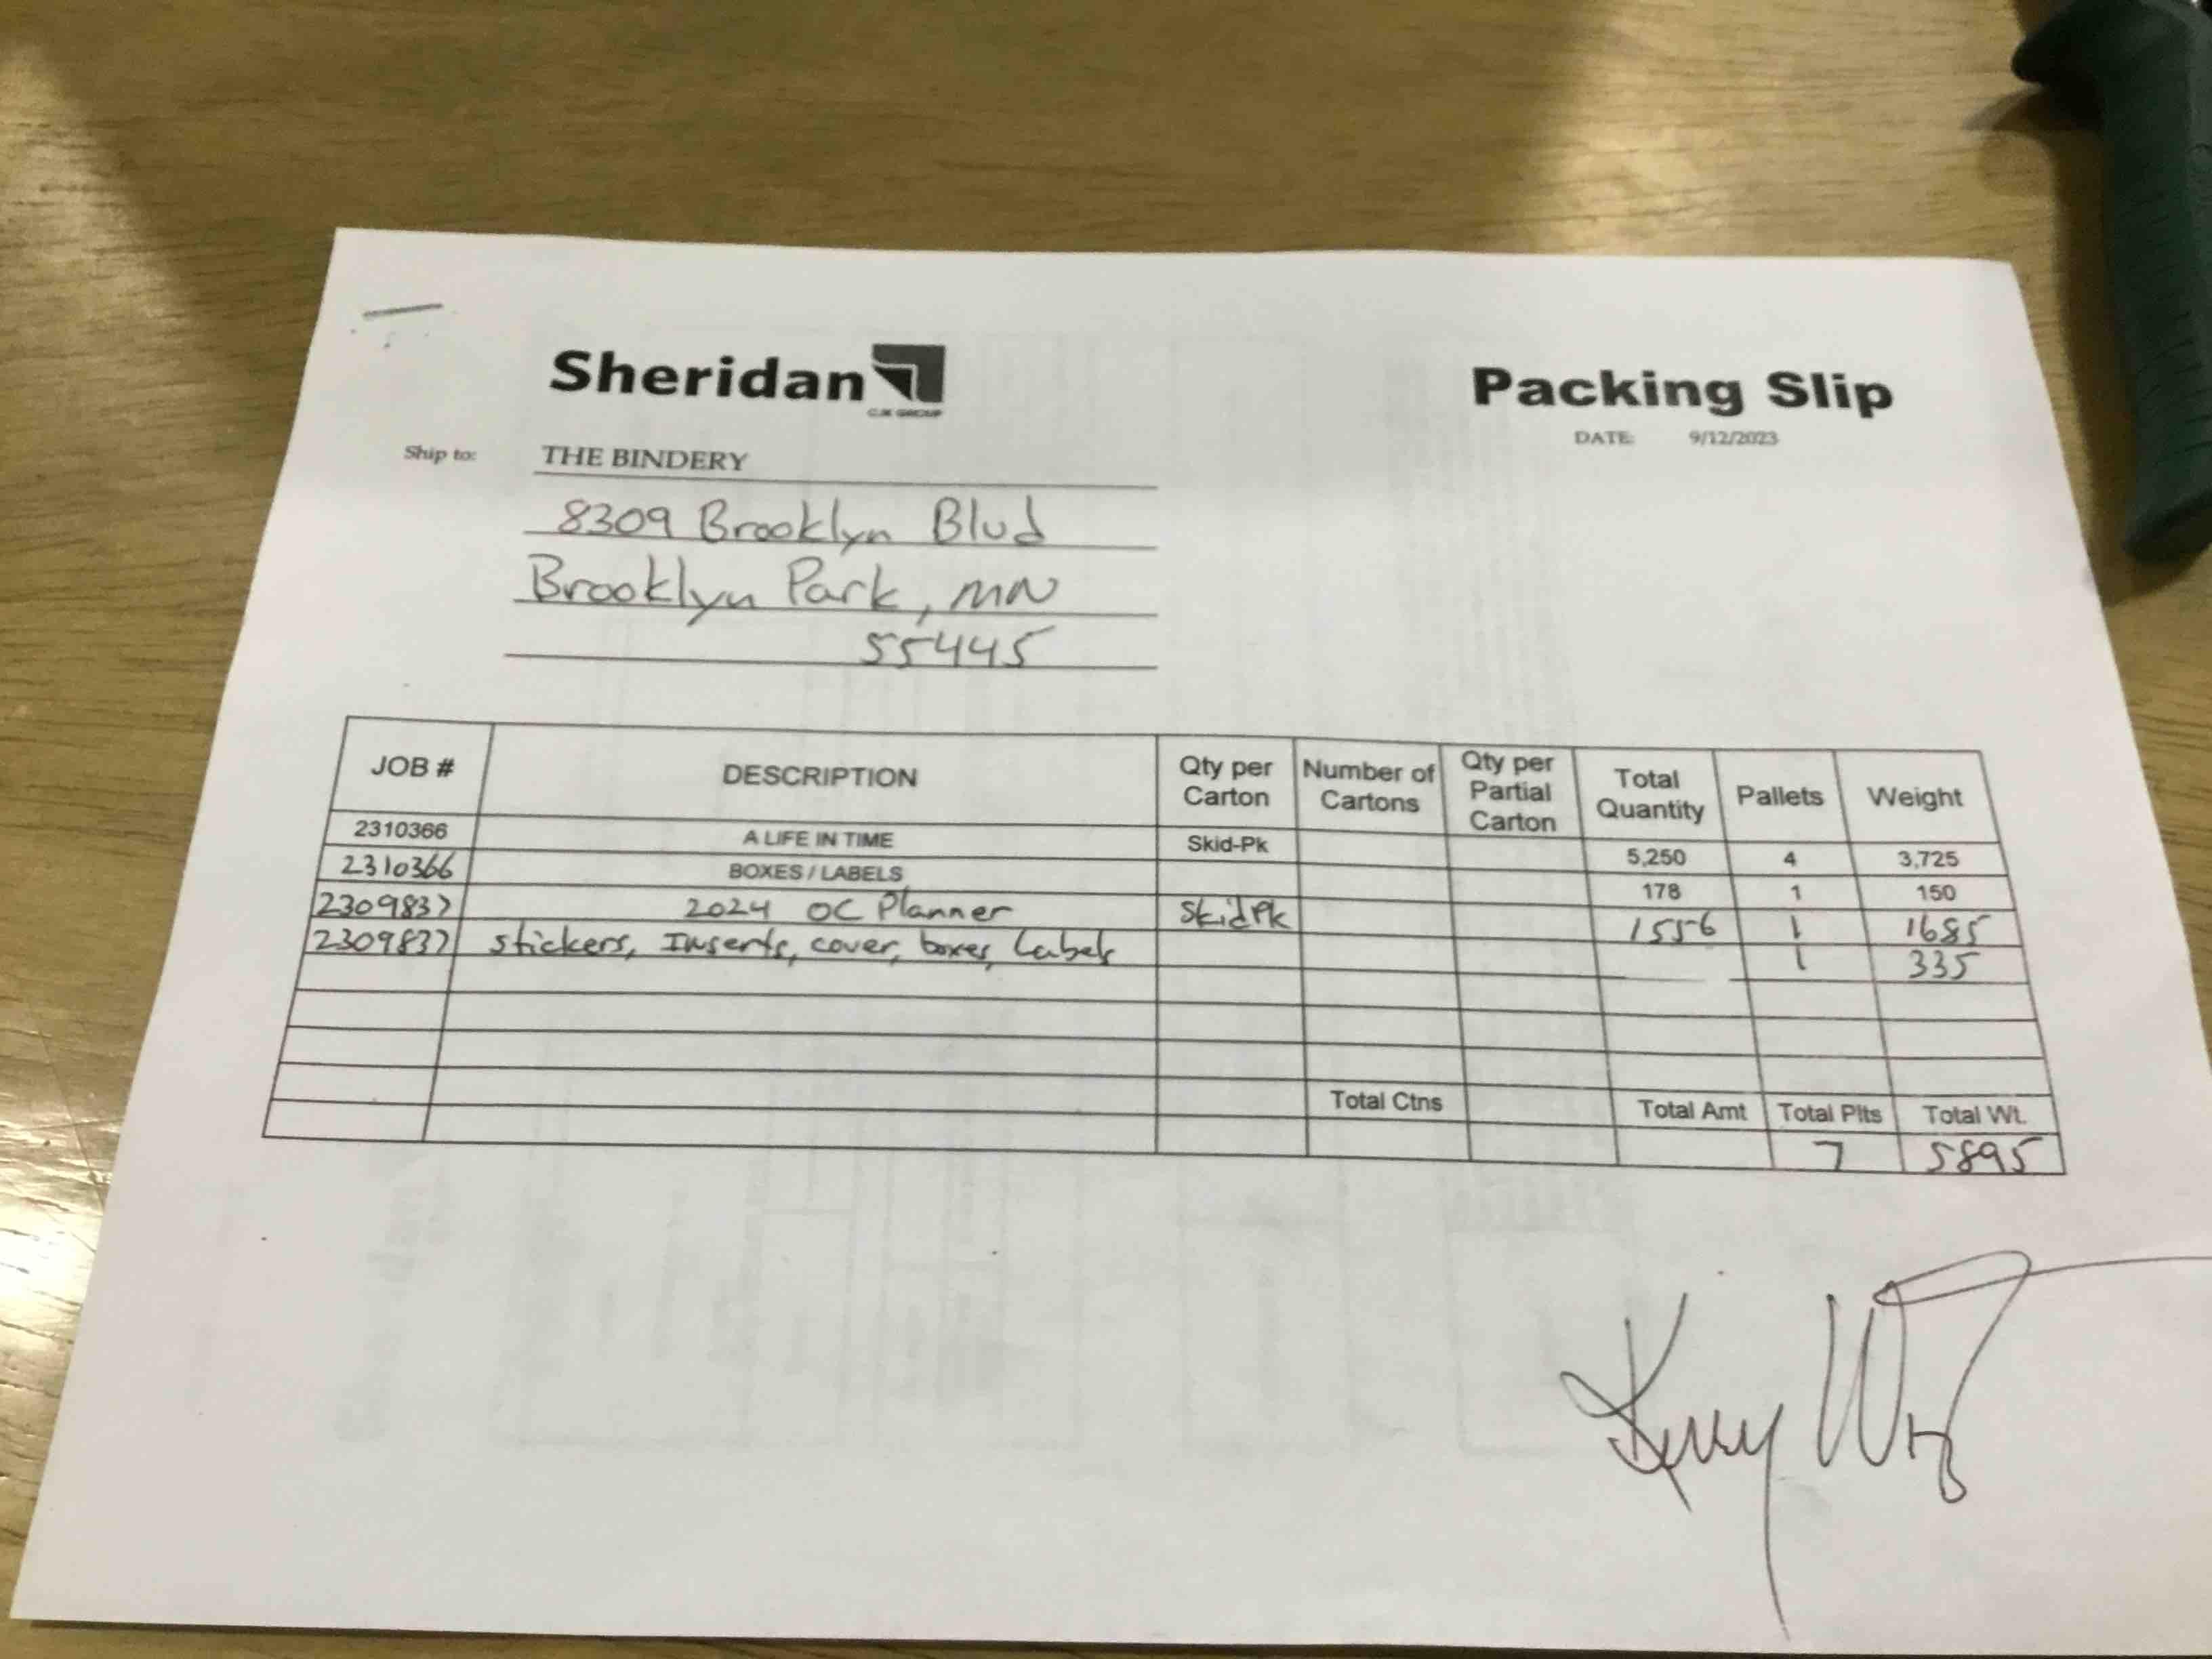 Sheridan
CJK GROUP
Packing Slip
DATE: 9/12/2023
Ship to: THE BINDERY
8309 Brooklyn Blvd
Brooklyn Park, MN
55445
JOB # DESCRIPTION Qty per Carton Number of Cartons Qty per Partial Carton Total Quantity Pallets Weight
2310366 A LIFE IN TIME Skid-Pk 5,250 4 3,725
2310366 BOXES / LABELS 178 1 150
2309837 2024 OC Planner SkidPk 1556 1 1685
2309837 stickers, Inserts, cover, boxes, Labels 1 335
Total Ctns Total Amt Total Plts Total Wt.
7 5895
Kerry